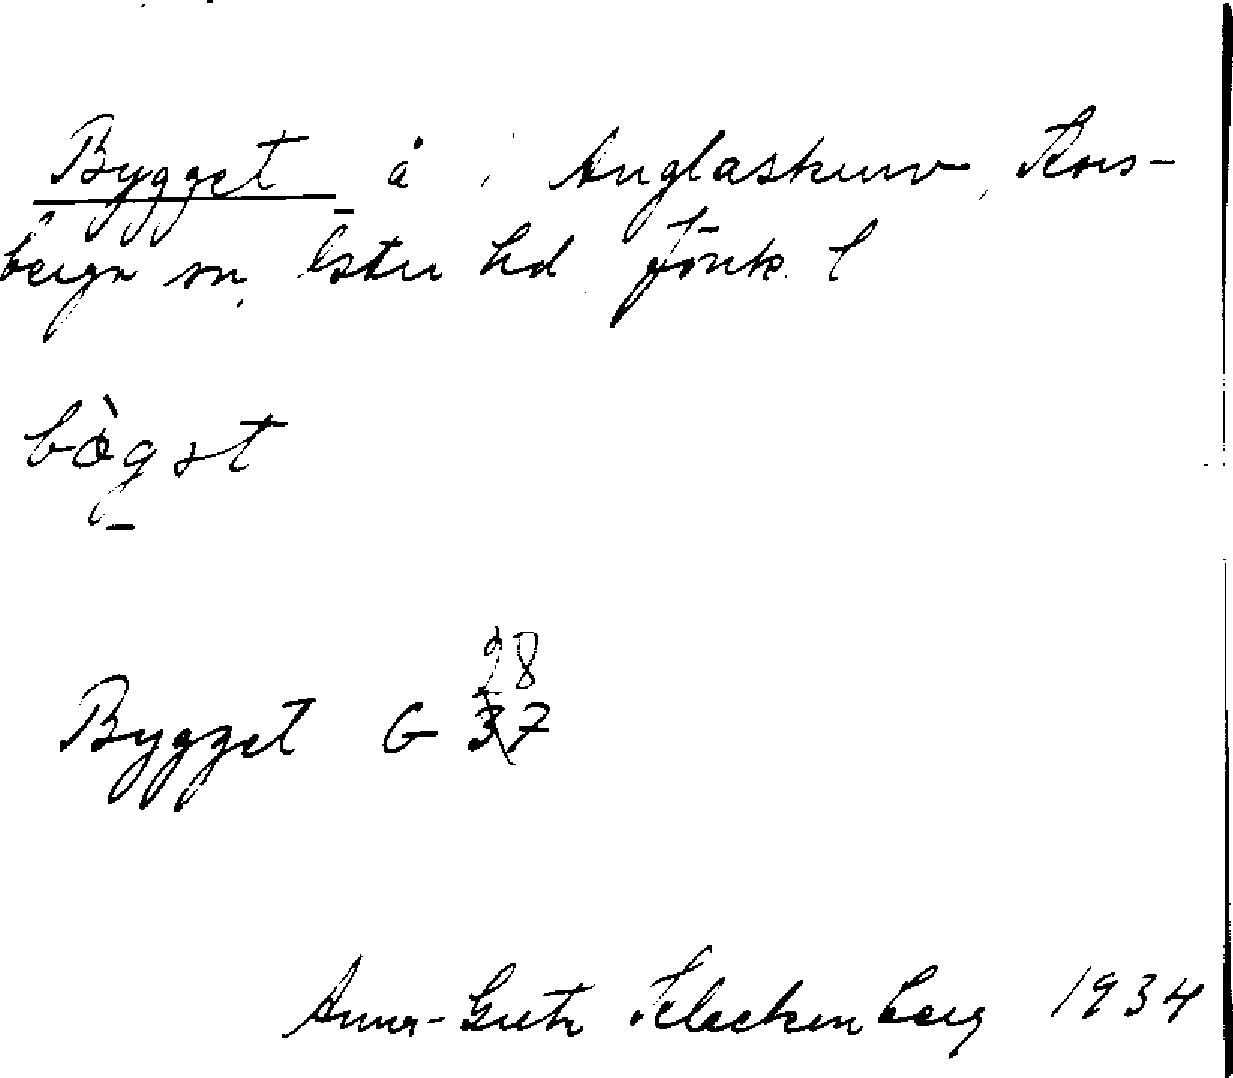 Bygget å i Anglaskurv, Kors-
berga sn, Östra hd Jönk. l
bògət
Bygget G 28 37
Anna-Greta Schackenberg 1934